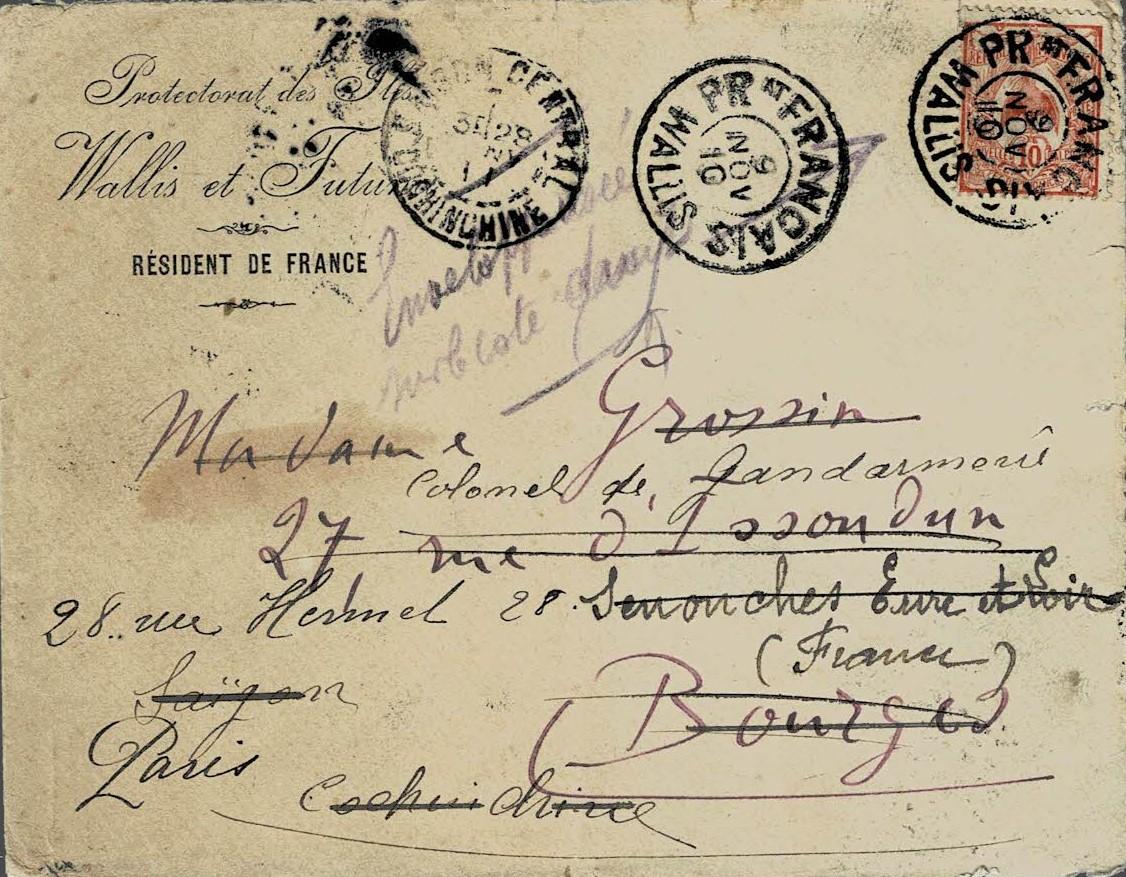 Protectorat des Iles
Wallis et Futuna
RÉSIDENT DE FRANCE
CENTRAL
COCHINCHINE
PR AT FRANÇAIS
WALLIS
9
NOV
10
PR AT FRANÇAIS
WALLIS
9
NOV
10
10
Enveloppe
sur le coté
Madame Grossin
Colonel de Gendarmerie
27 rue d'Issoudun
28. rue Hermel 28. Senonches Eure et Loir
(France)
Saïgon
Bourges
Paris
Cochinchine